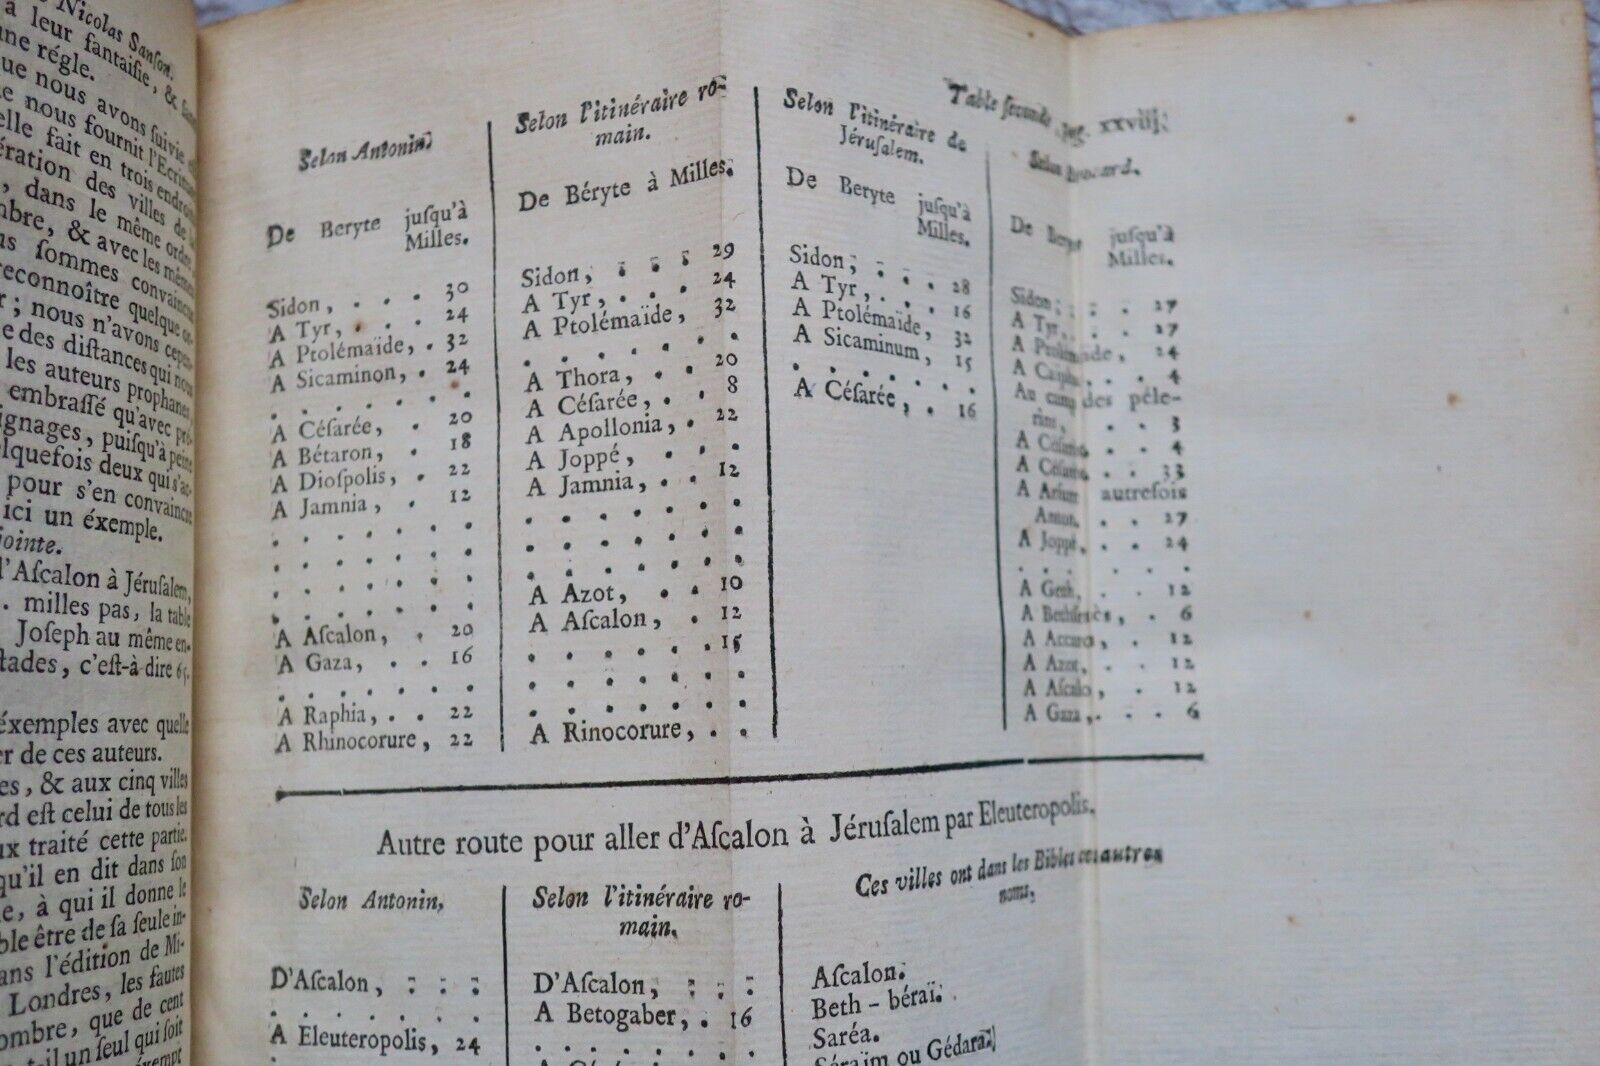 Nicolas Sanſon.
à leur fantaiſie, &
une régle.
que nous avons ſuivie
nous fournit l'Ecriture
elle fait en trois endroits
ération des villes de
, dans le même ordre,
mbre, & avec les mêmes
ſommes convaincus
reconnoître quelque
; nous n'avons
des diſtances qui nous
les auteurs prophanes
embraſſé qu'avec
ignages, puiſqu'à peine
elquefois deux qui
pour s'en convaincre
ici un éxemple.
jointe.
d'Aſcalon à Jéruſalem,
milles pas, la table
Joſeph au même en-
tades, c'eſt-à dire 65.
éxemples avec quelle
er de ces auteurs.
es, & aux cinq villes
rd eſt celui de tous les
ux traité cette partie.
qu'il en dit dans ſon
e, à qui il donne le
ble être de ſa ſeule in-
ans l'édition de Mi-
Londres, les fautes
ombre, que de cent
un ſeul qui ſoit
éxempt
Table ſeconde, pag. xxviij.
Selon Antonin.
De Beryte juſqu'à
Milles.
Sidon, . . . 30
A Tyr, . . . 24
A Ptolémaïde, . 32
A Sicaminon, . 24
. . . . . . .
A Céſarée, . 20
A Bétaron, . 18
A Dioſpolis, . 22
A Jamnia, . 12
. . . . . . .
. . . . . . .
. . . . . . .
. . . . . . .
A Aſcalon, . 20
A Gaza, . . 16
. . . . . . .
A Raphia, . . 22
A Rhinocorure, 22
Selon l'itinéraire ro-
main.
De Béryte à Milles.
Sidon, . . . 29
A Tyr, . . . 24
A Ptolémaïde, 32
. . . . . . .
A Thora, . . 20
A Céſarée, . . 8
A Apollonia, . 22
A Joppé, . . .
A Jamnia, . . 12
. . . . . . .
. . . . . . .
. . . . . . .
A Azot, . . 10
A Aſcalon, . 12
. . . . . . 15
. . . . . . .
. . . . . . .
A Rinocorure, . .
Selon l'itinéraire de
Jéruſalem.
De Beryte juſqu'à
Milles.
Sidon, . . . 28
A Tyr, . . . 16
A Ptolémaïde, 32
A Sicaminum, 15
. . . . . . .
A Céſarée, . 16
Selon Brocard.
De Beryte juſqu'à
Milles.
Sidon, . . . 27
A Tyr, . . . 27
A Ptolémaïde, 24
A . . 4
Au camp des péle-
rins, . . 3
A . . 4
A Céſarée, . . 33
A autrefois
. . 27
A Joppé, . . 24
. . . . . . .
A Geth, . . 12
A . 6
A . . 12
A Azot, . . 12
A Aſcalo, . . 12
A Gaza, . . . 6
Autre route pour aller d'Aſcalon à Jéruſalem par Eleuteropolis.
Selon Antonin,
D'Aſcalon, . . .
. . . . . . .
A Eleuteropolis, 24
Selon l'itinéraire ro-
main.
D'Aſcalon, . . .
A Betogaber, . 16
. . . . . . .
Ces villes ont dans les Bibles ces autres
noms,
Aſcalon.
Beth-béraï.
Saréa.
Séraïm ou Gédara.